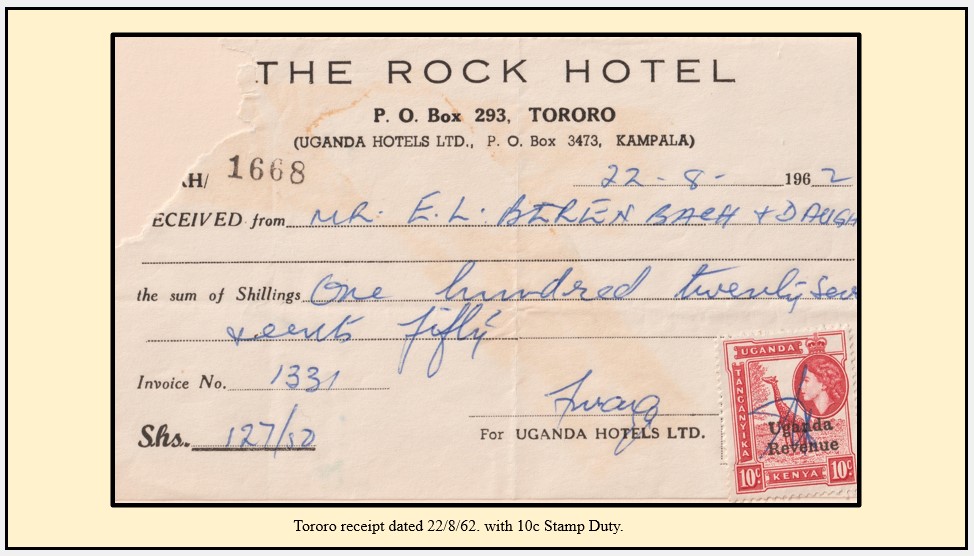 THE ROCK HOTEL
P. O. Box 293, TORORO
(UGANDA HOTELS LTD., P. O. Box 3473, KAMPALA)
RH/ 1668
22-8-1962
ECEIVED from MR: E. L: BEREN BACH + DAUGH
the sum of Shillings One hundred twenty seve
& cents fifty
Invoice No. 1331
Shs. 127/50
For UGANDA HOTELS LTD.
UGANDA
TANGANYIKA
Uganda
Revenue
10c KENYA 10c
Tororo receipt dated 22/8/62. with 10c Stamp Duty.